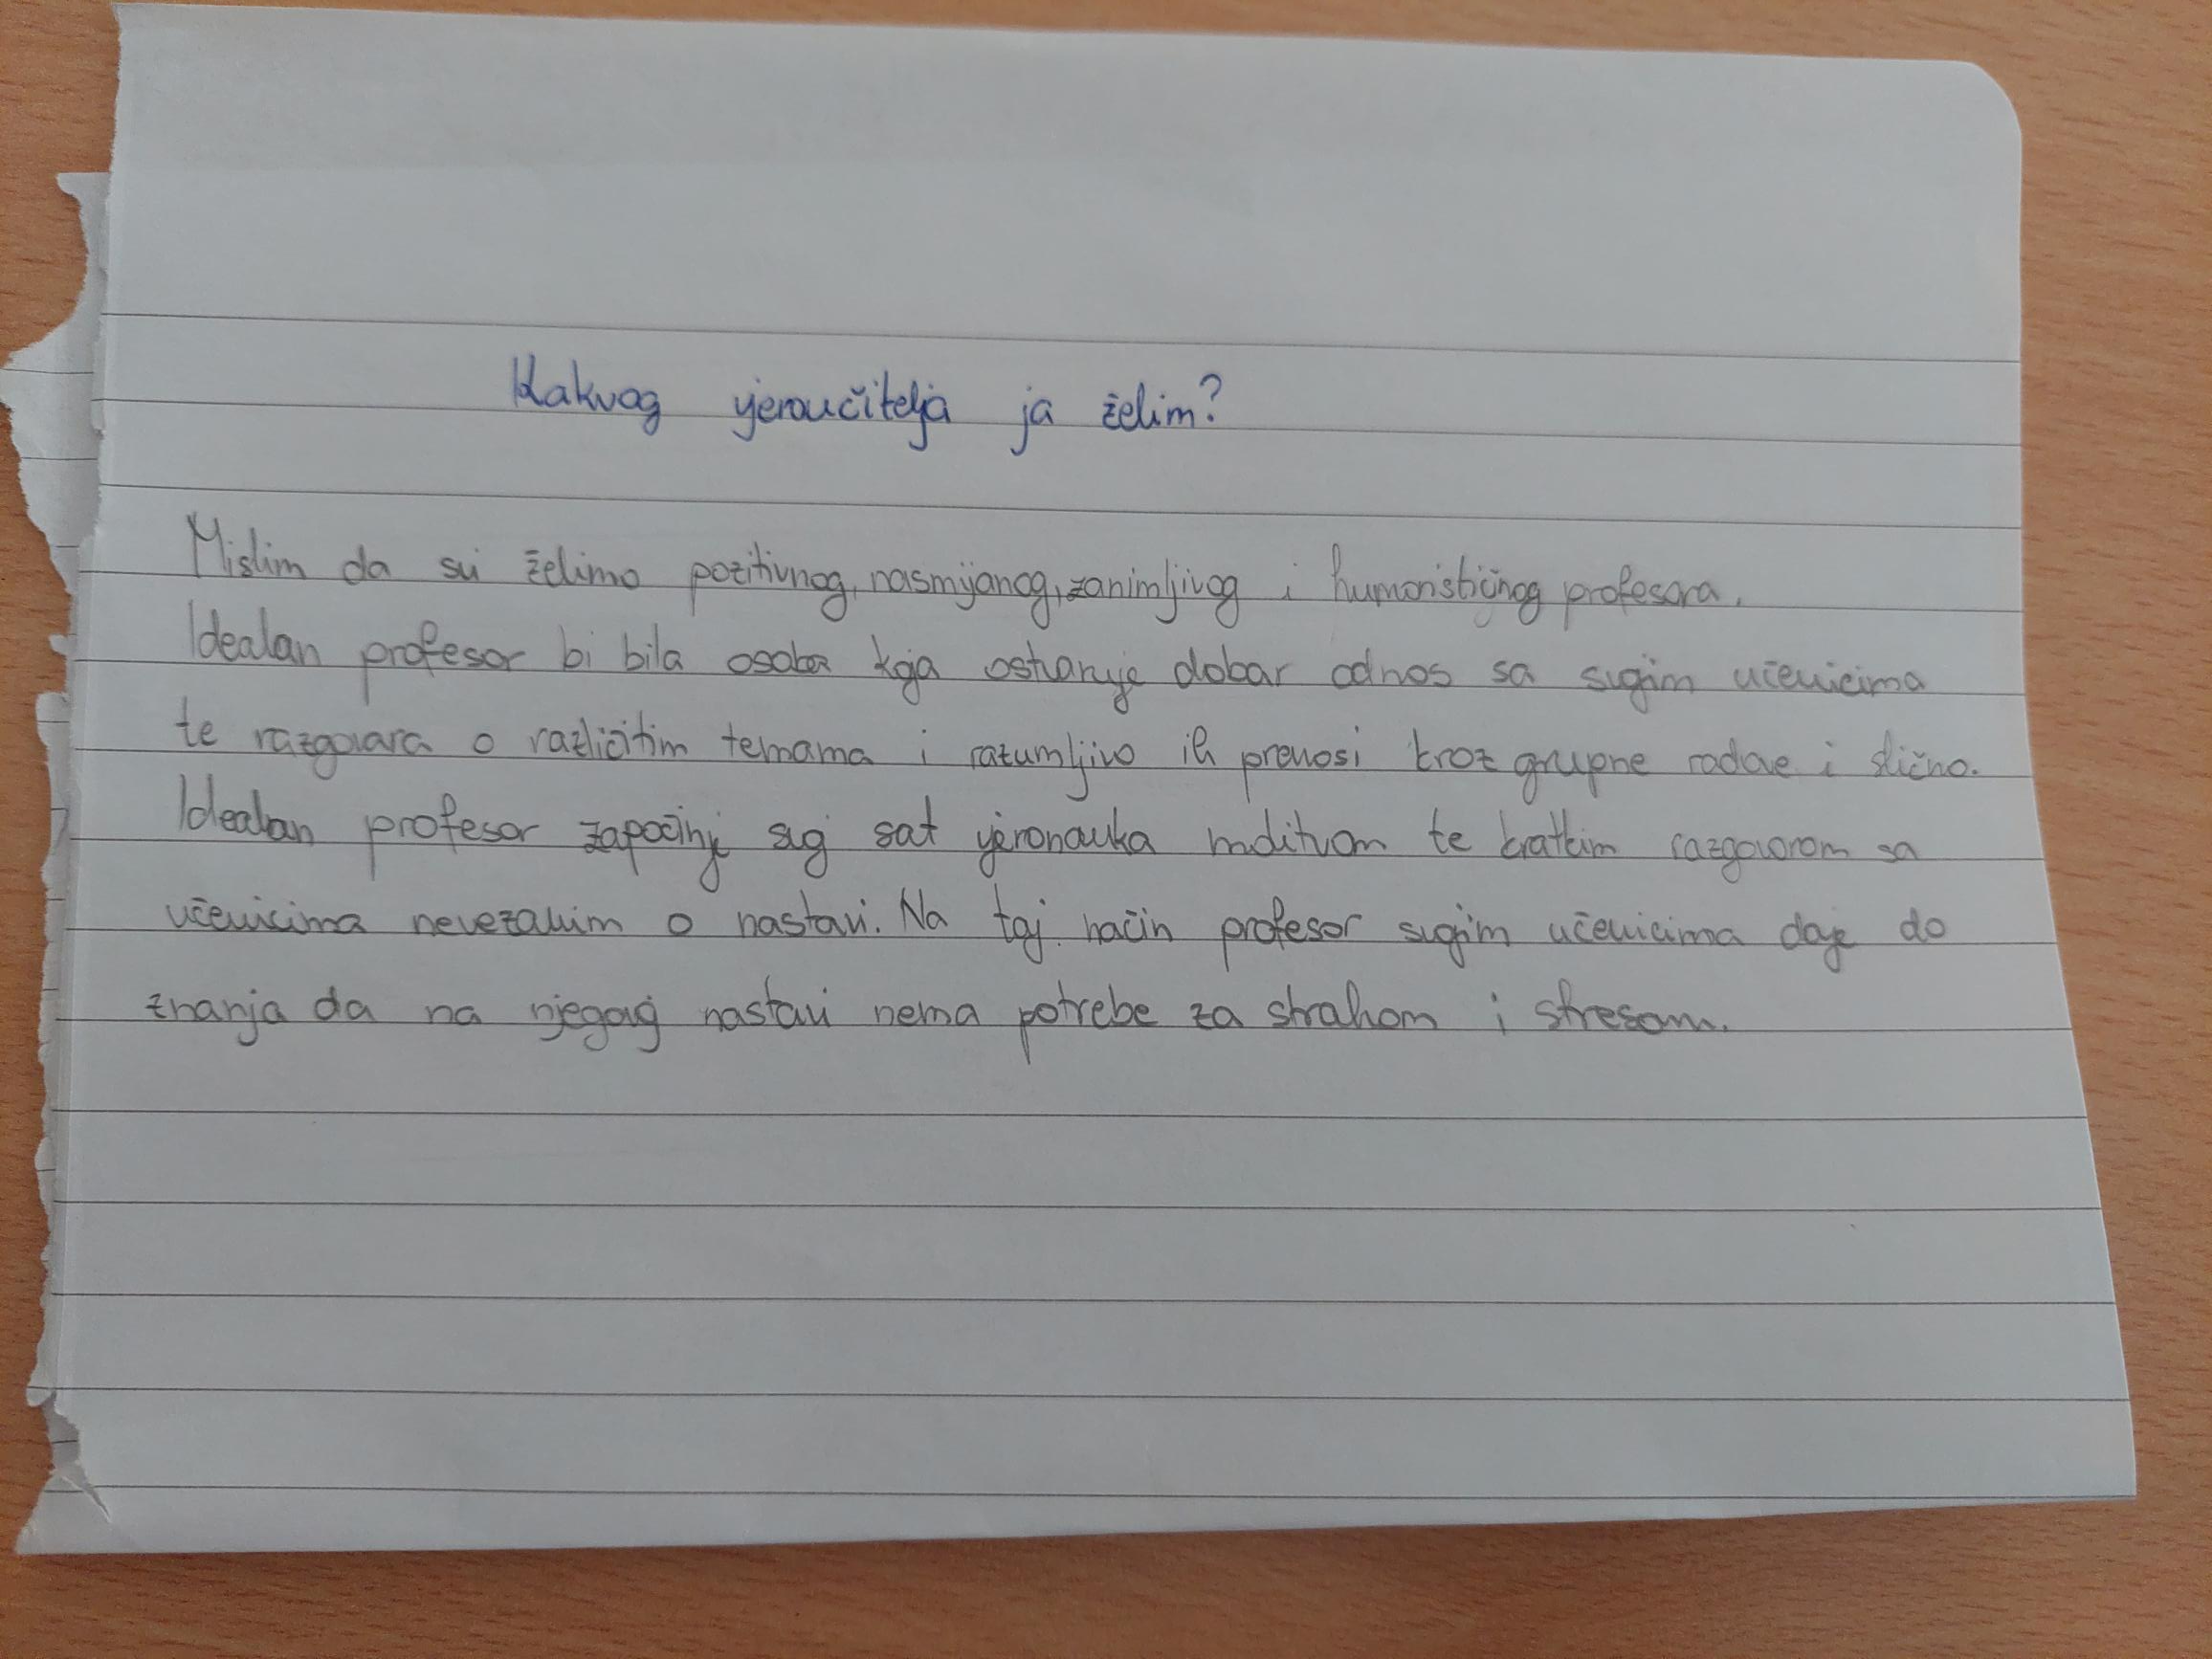 Kakvog vjeroučitelja ja želim?
Mislim da svi želimo pozitivnog, nasmijanog, zanimljivog i humorističnog profesora.
Idealan profesor bi bila osoba koja ostvaruje dobar odnos sa svojim učenicima
te razgovara o različitim temama i razumljivo ih prenosi kroz grupne radove i slično.
Idealan profesor započinje svoj sat vjeronauka molitvom te kratkim razgovorom sa
učenicima nevezanim o nastavi. Na taj način profesor svojim učenicima daje do
znanja da na njegovoj nastavi nema potrebe za strahom i stresom.